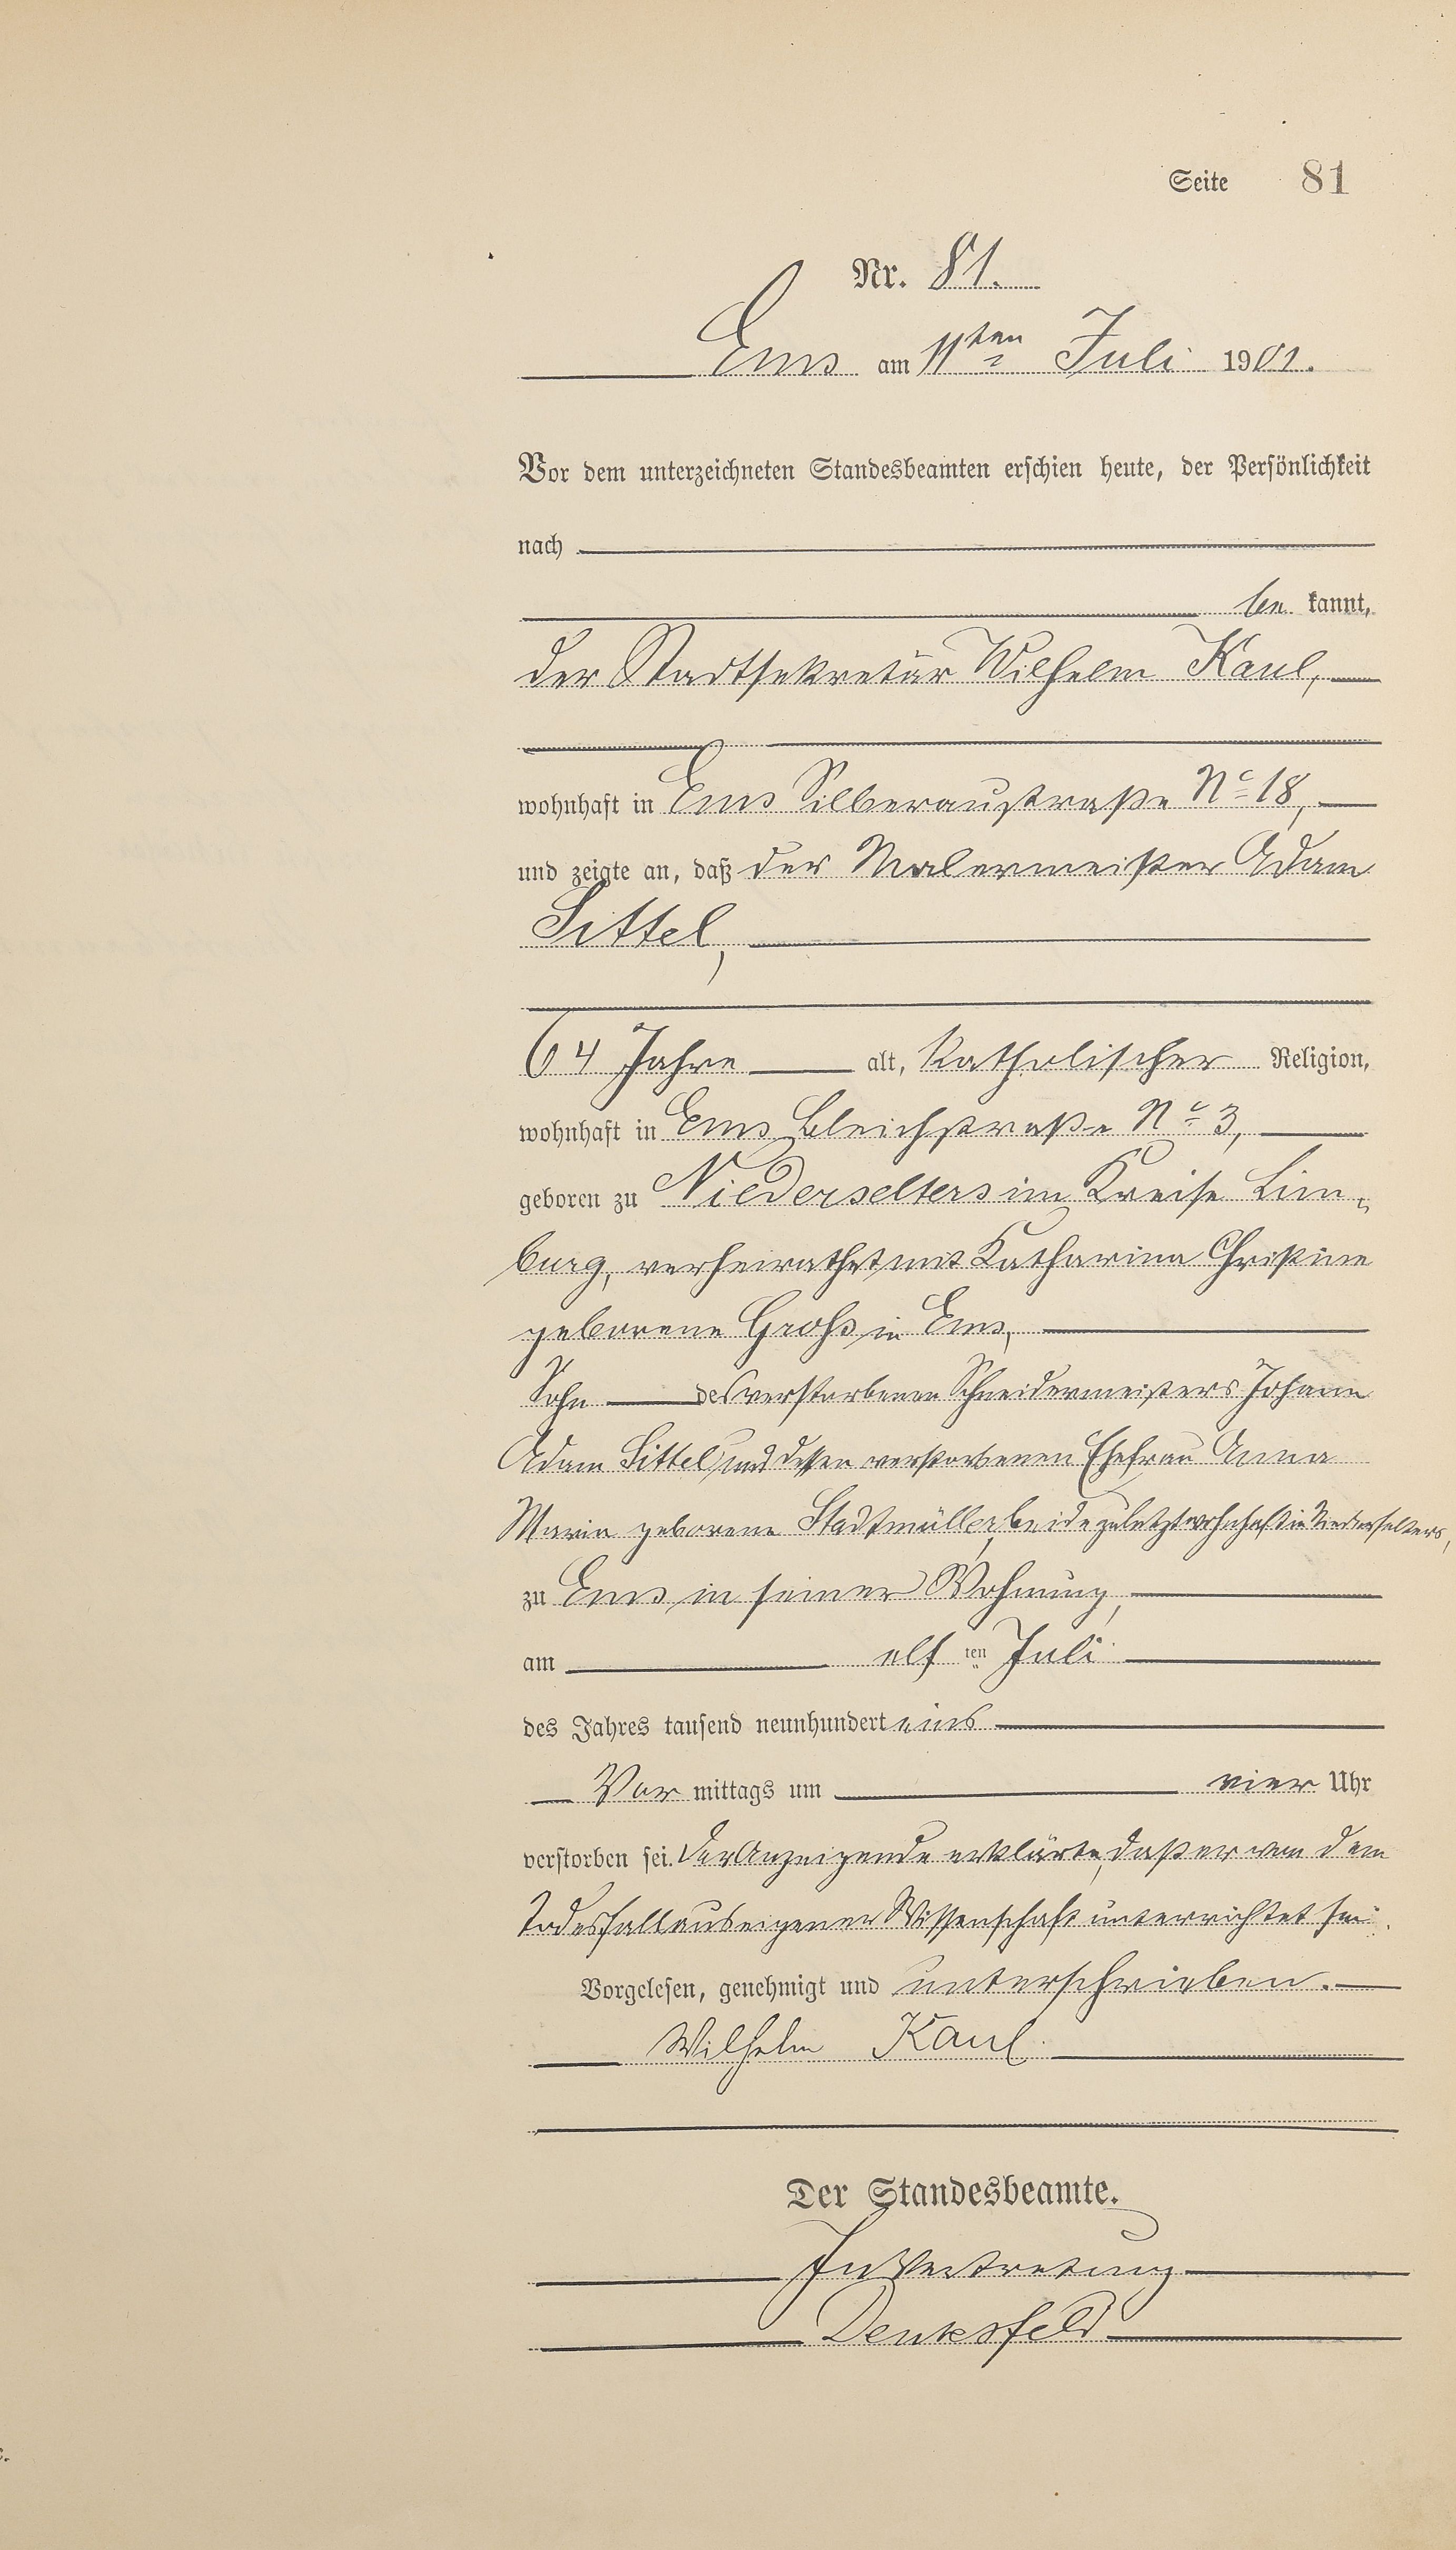 Seite 81
Nr. 81.
Ems am 11ten Juli 1901.
Vor dem unterzeichneten Standesbeamten erschien heute, der Persönlichkeit
nach
be kannt,
der Stadtsekretär Wilhelm Kaul,
wohnhaft in Ems Silberaustraße No 18,
und zeigte an, daß der Malermeister Adam
Sittel,
64 Jahre alt, katholischer Religion,
wohnhaft in Ems Bleichstraße No 3,
geboren zu Niederselters im Kreise Lim-
burg, verheirathet mit Katharina Christine
geborene Groß in Ems,
Sohn des verstorbenen Schneidermeisters Johann
Adam Sittel und dessen verstorbenen Ehefrau Anna
Maria geborene Stadtmüller, beide zuletzt wohnhaft in Niederselters,
zu Ems in seiner Wohnung,
am elf ten Juli
des Jahres tausend neunhundert eins
Vor mittags um vier Uhr
verstorben sei. Der Anzeigende erklärte, daß er von dem
Todesfall aus eigener Wissenschaft unterrichtet sei.
Vorgelesen, genehmigt und unterschrieben.
Wilhelm Kaul
Der Standesbeamte.
In Vertretung